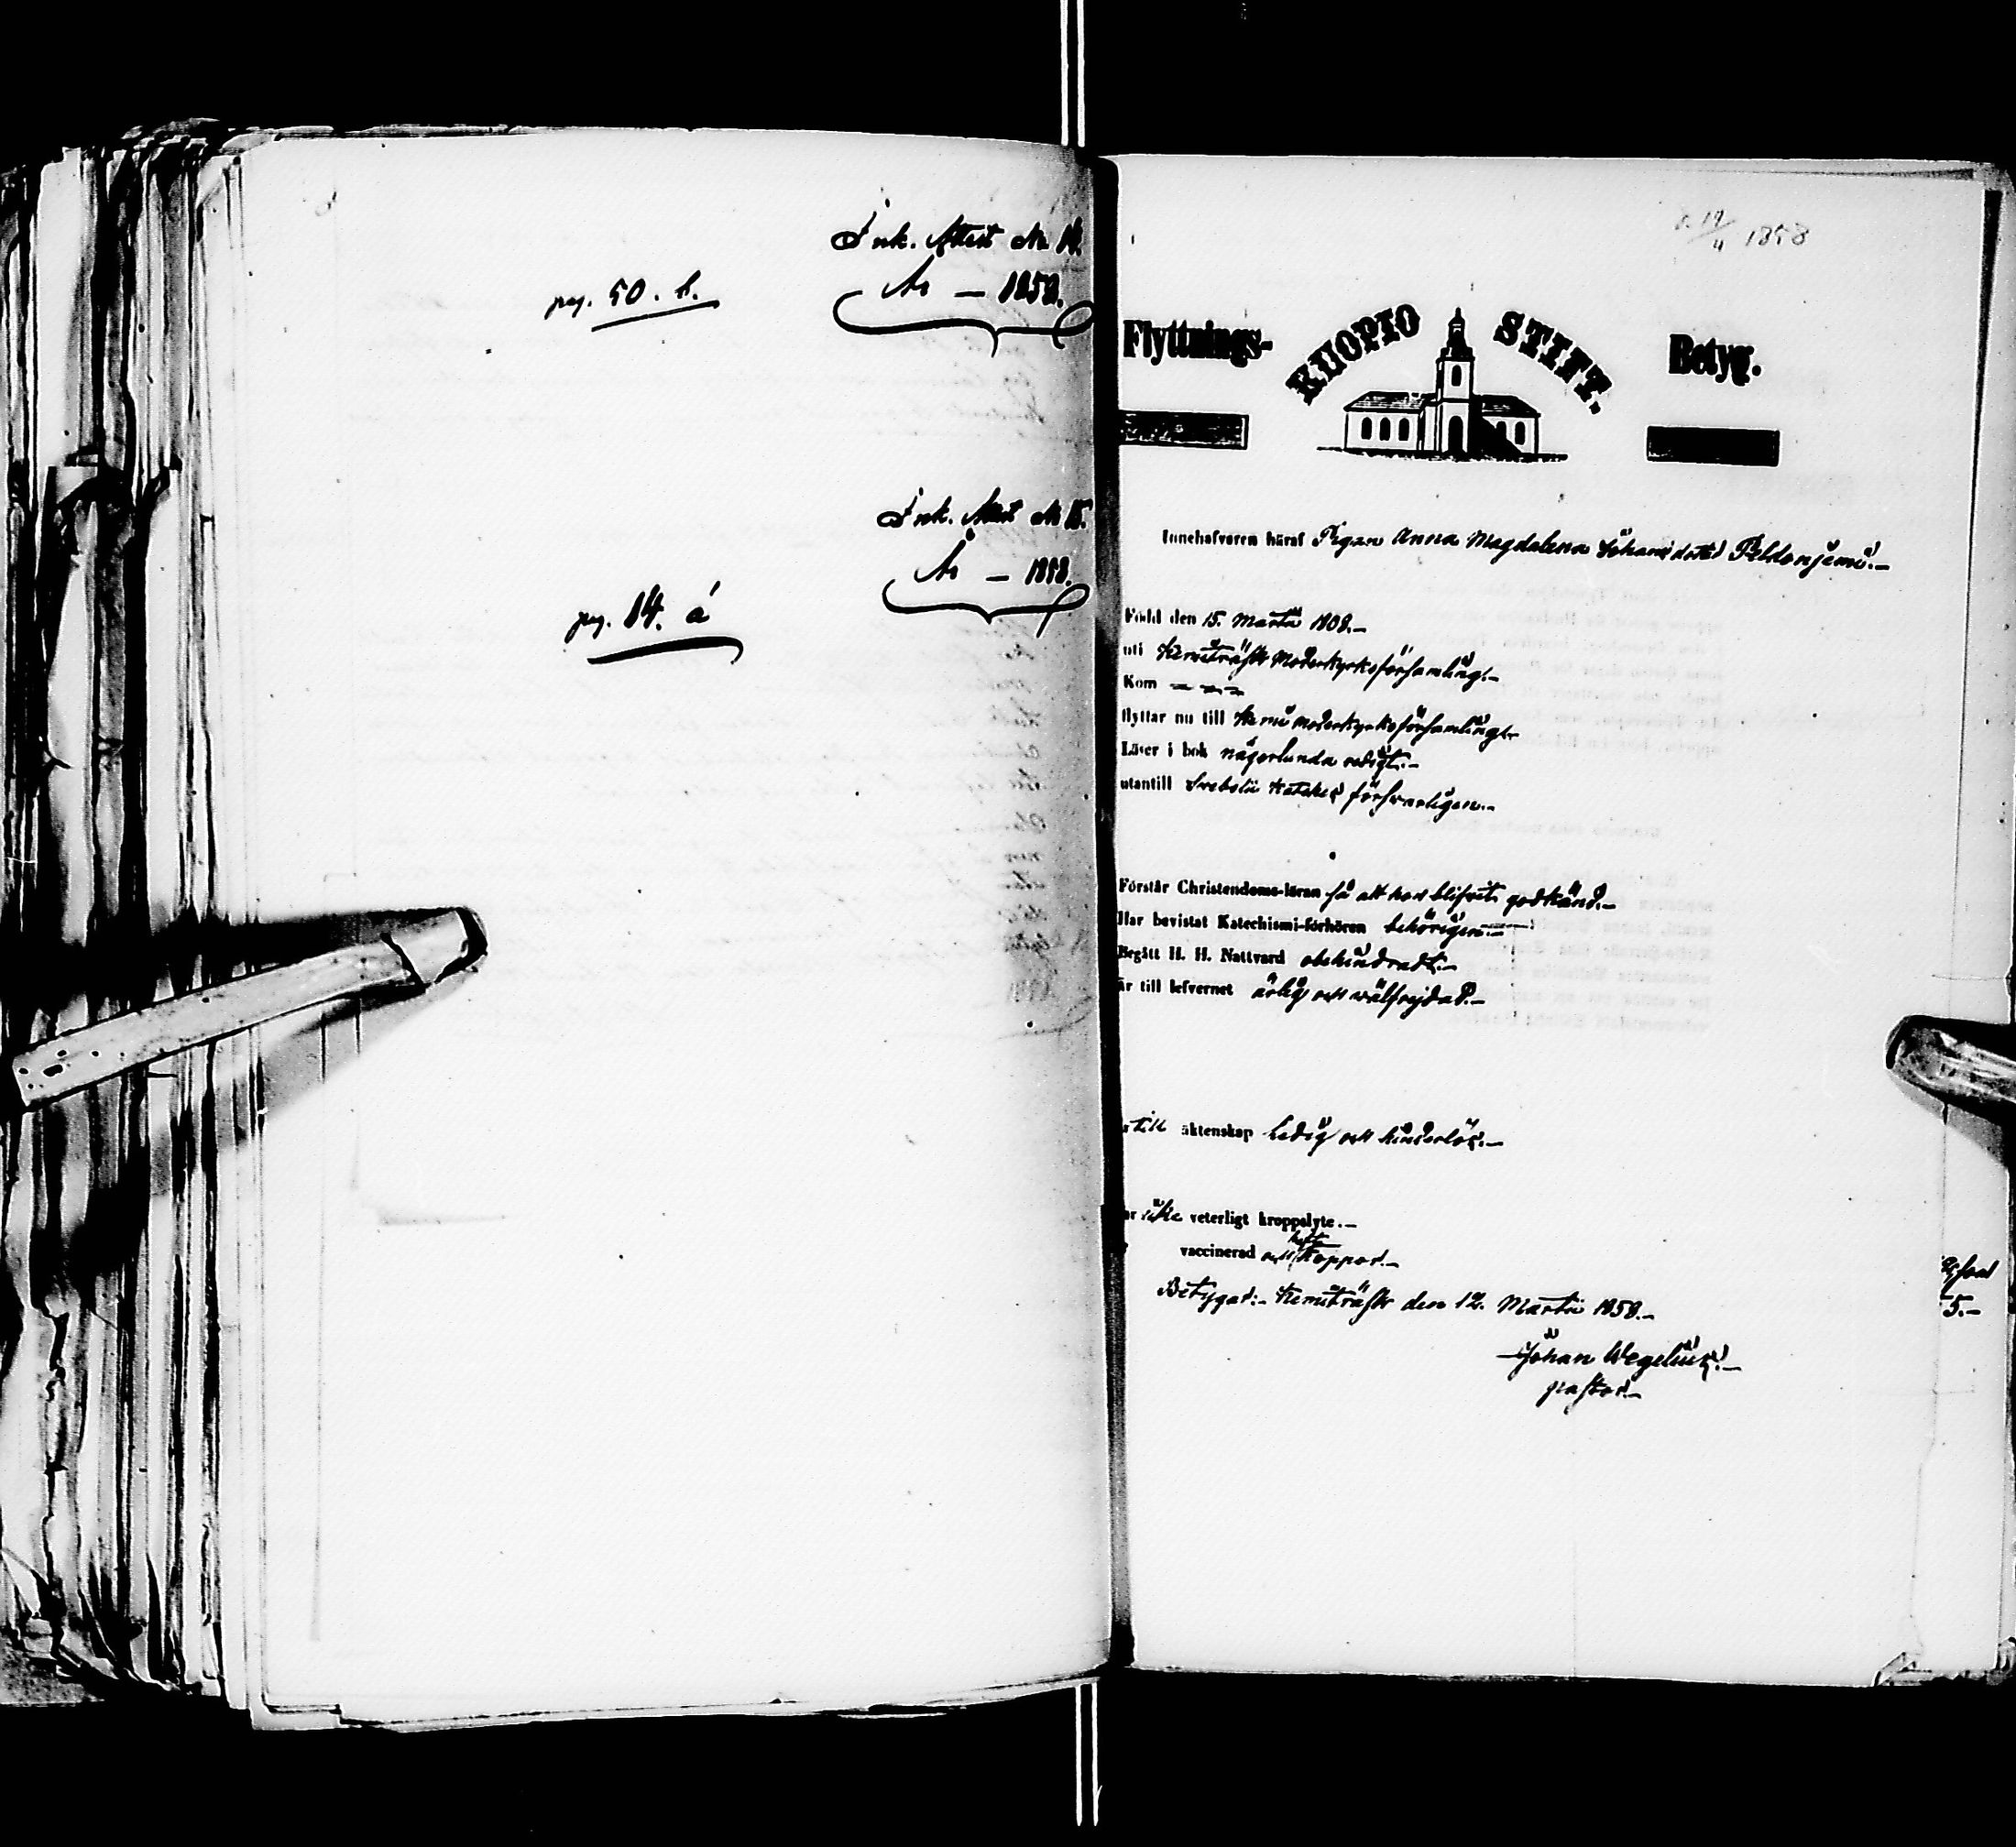 Ink. Attest No 14.
År — 1858.
pag. 50. b.
Ink. Attest No 15.
År — 1858.
pag. 14. a
19/4 1858
Flyttnings- KUOPIO STIFT. Betyg.
Innehafvaren häraf Pigan Anna Magdalena Johansdotter Peldoniemi.—
Född den 15. Martii 1808.—
uti Kemiträsk Moderkyrkoförsamling.—
Kom
flyttar nu till Kemi moderkyrkoförsamling.—
Läser i bok någorlunda redigt.—
utantill Svebelii Kateches försvarligen.—
Förstår Christendoms-läran så att hon blifvit godkänd.—
Har bevistat Katechismi-förhören behörigen.—
Begått H. H. Nattvard obehindradt.—
är till lefvernet ärlig och välfrejdad.—
till äktenskap Ledig och hinderlös.—
icke veterligt kroppslyte.—
vaccinerad och haft koppor.—
Betygar:— Kemiträsk den 12. Martii 1858.—
Johan Wegelius.—
pastor.—
5.—